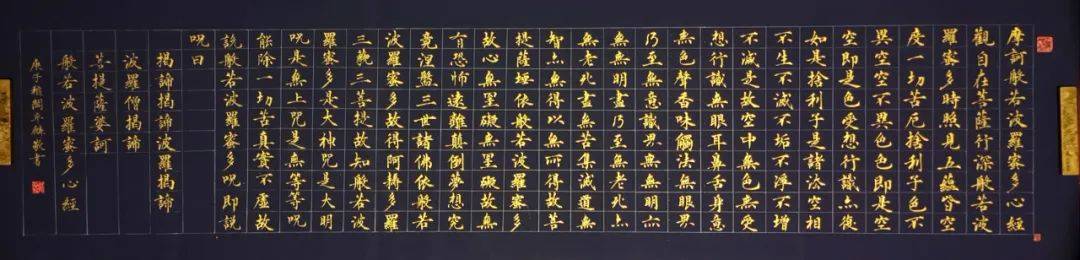 摩訶般若波羅蜜多心經
觀自在菩薩行深般若波
羅蜜多時照見五蘊皆空
度一切苦厄捨利子色不
異空空不異色色即是空
空即是色受想行識亦復
如是捨利子是諸法空相
不生不滅不垢不淨不增
不減是故空中無色無受
想行識無眼耳鼻舌身意
無色聲香味觸法無眼界
乃至無意識界無無明亦
無無明盡乃至無老死亦
無老死盡無苦集滅道無
智亦無得以無所得故菩
提薩埵依般若波羅蜜多
故心無罣礙無罣礙故無
有恐怖遠離顛倒夢想究
竟涅槃三世諸佛依般若
波羅蜜多故得阿耨多羅
三藐三菩提故知般若波
羅蜜多是大神咒是大明
咒是無上咒是無等等咒
能除一切苦真實不虛故
說般若波羅蜜多咒即說
咒曰
揭諦揭諦波羅揭諦
波羅僧揭諦
菩提薩婆訶
般若波羅蜜多心經
庚子敬書